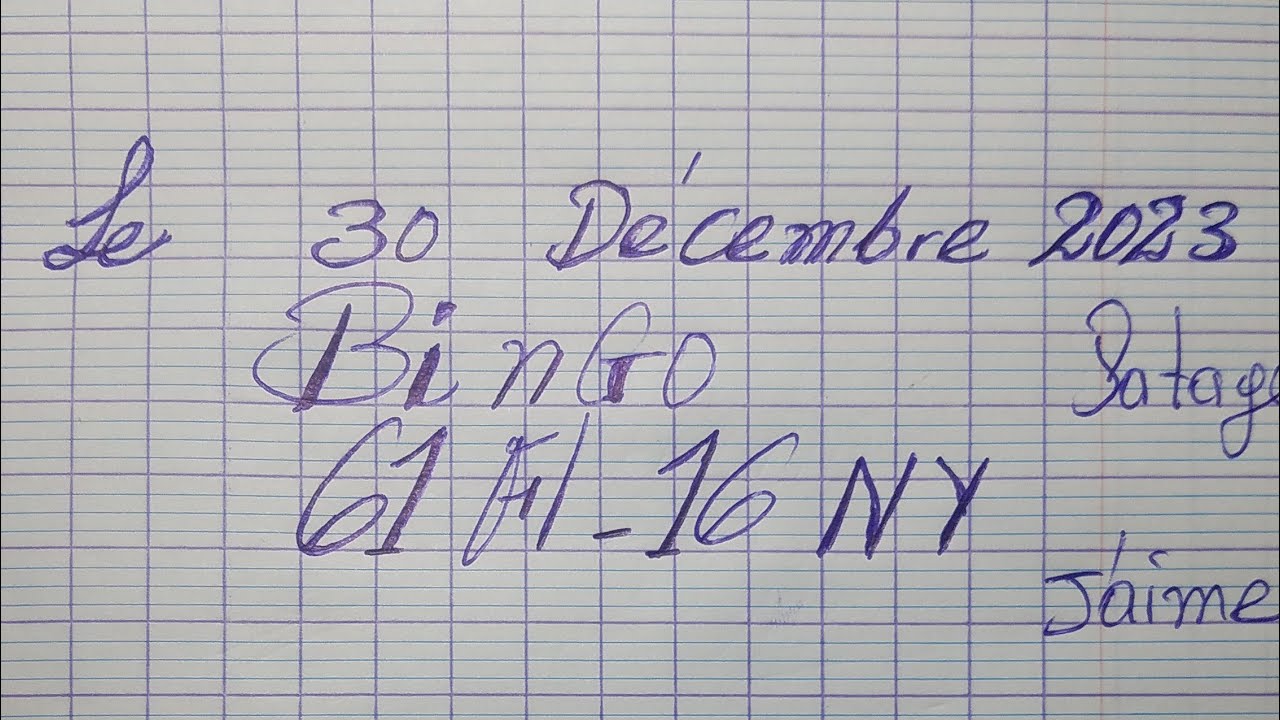 Le 30 Décembre 2023
BinGo
Patage
61 Fl - 16 NY
J'aime